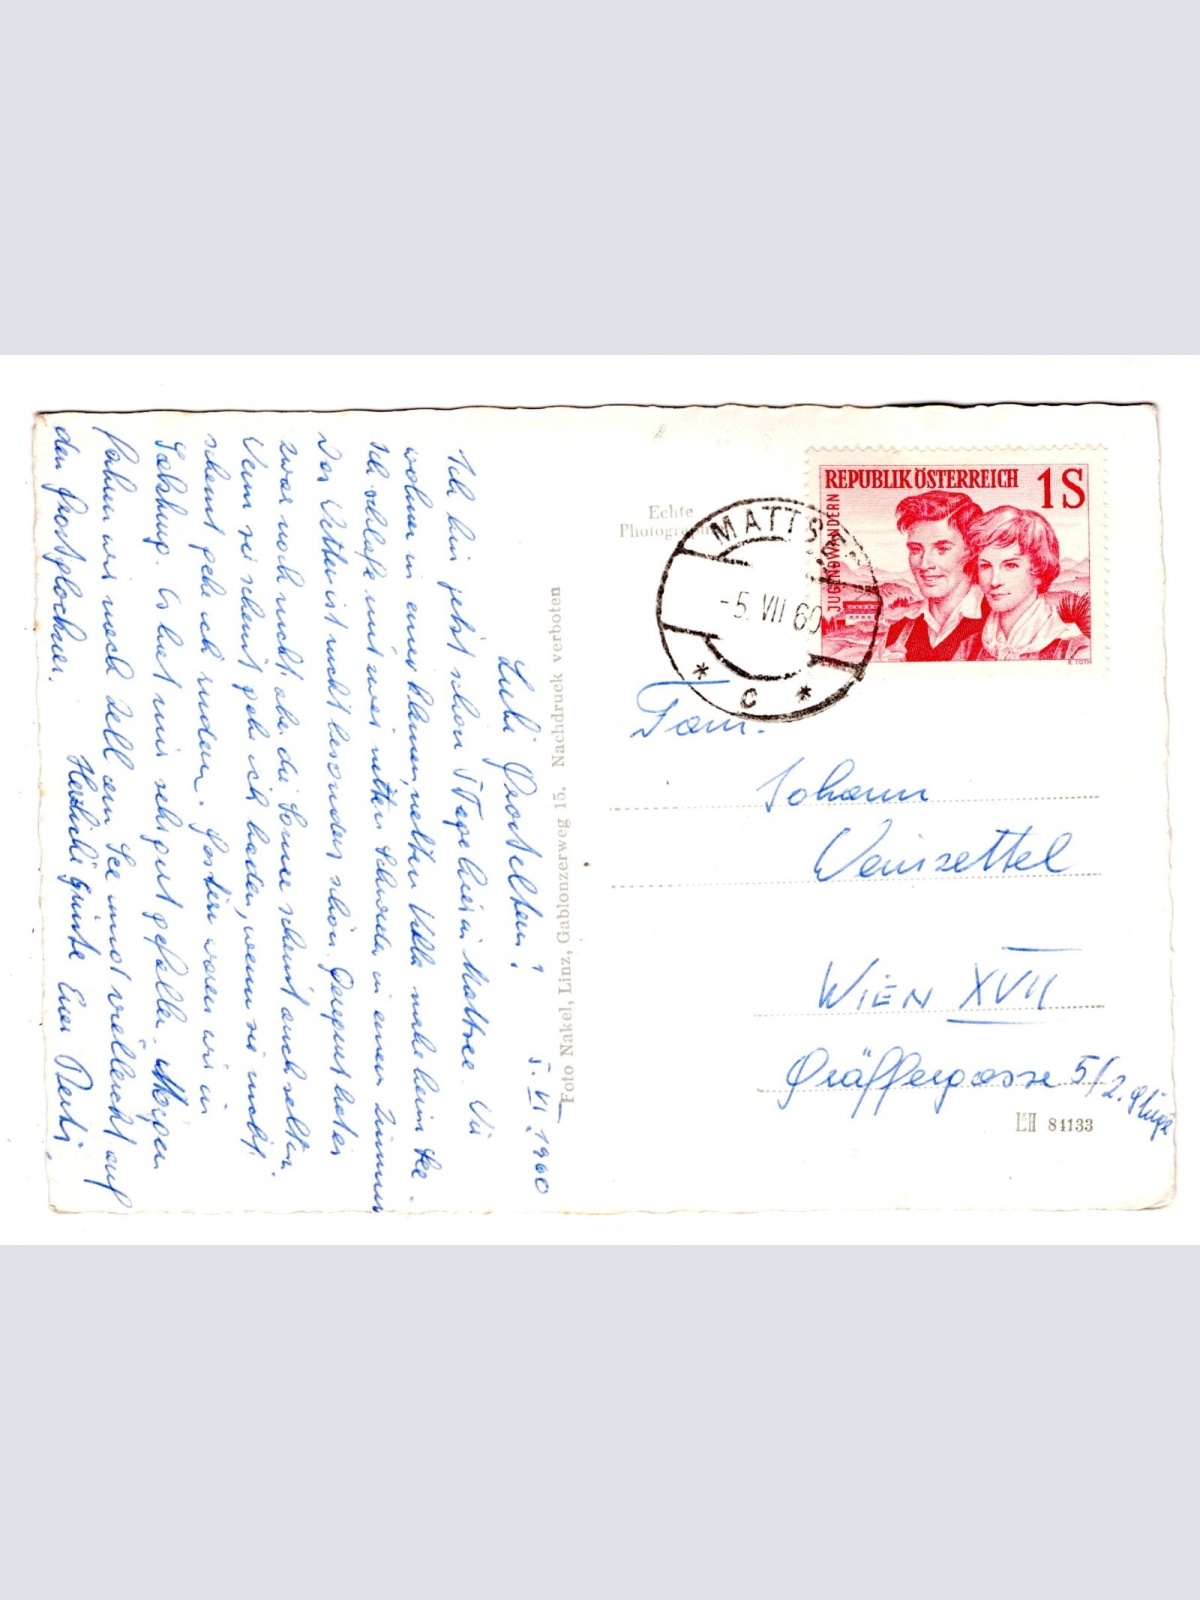 5. VI. 1960
Liebe Großeltern!
Ich bin jetzt schon 5 Tage hier in Mattsee. Wir
wohnen in einer kleinen, netten Villa nahe beim See.
Ich schlafe mit zwei netten in einem Zimmer
Das Wetter ist nicht besonders schön. Geregnet hat es
zwar noch nicht, aber die Sonne scheint auch selten.
Wenn sie scheint gehe ich baden, wenn sie nicht
scheint gehe ich rudern. Gestern waren wir in
Salzburg. Es hat mir sehr gut gefallen. Morgen
fahren wir nach Zell am See und vielleicht auf
den Großglockner.
Herzliche Grüße Euer
Foto Nakel, Linz, Gablonzerweg 15. Nachdruck verboten
Echte
REPUBLIK ÖSTERREICH 1S
JUGENDWANDERN
R. TOTH
MATTSEE
-5. VII 60
* C *
Fam.
Johann
Weinzettel
WIEN XVII
Gräffergasse 5/2.
84133